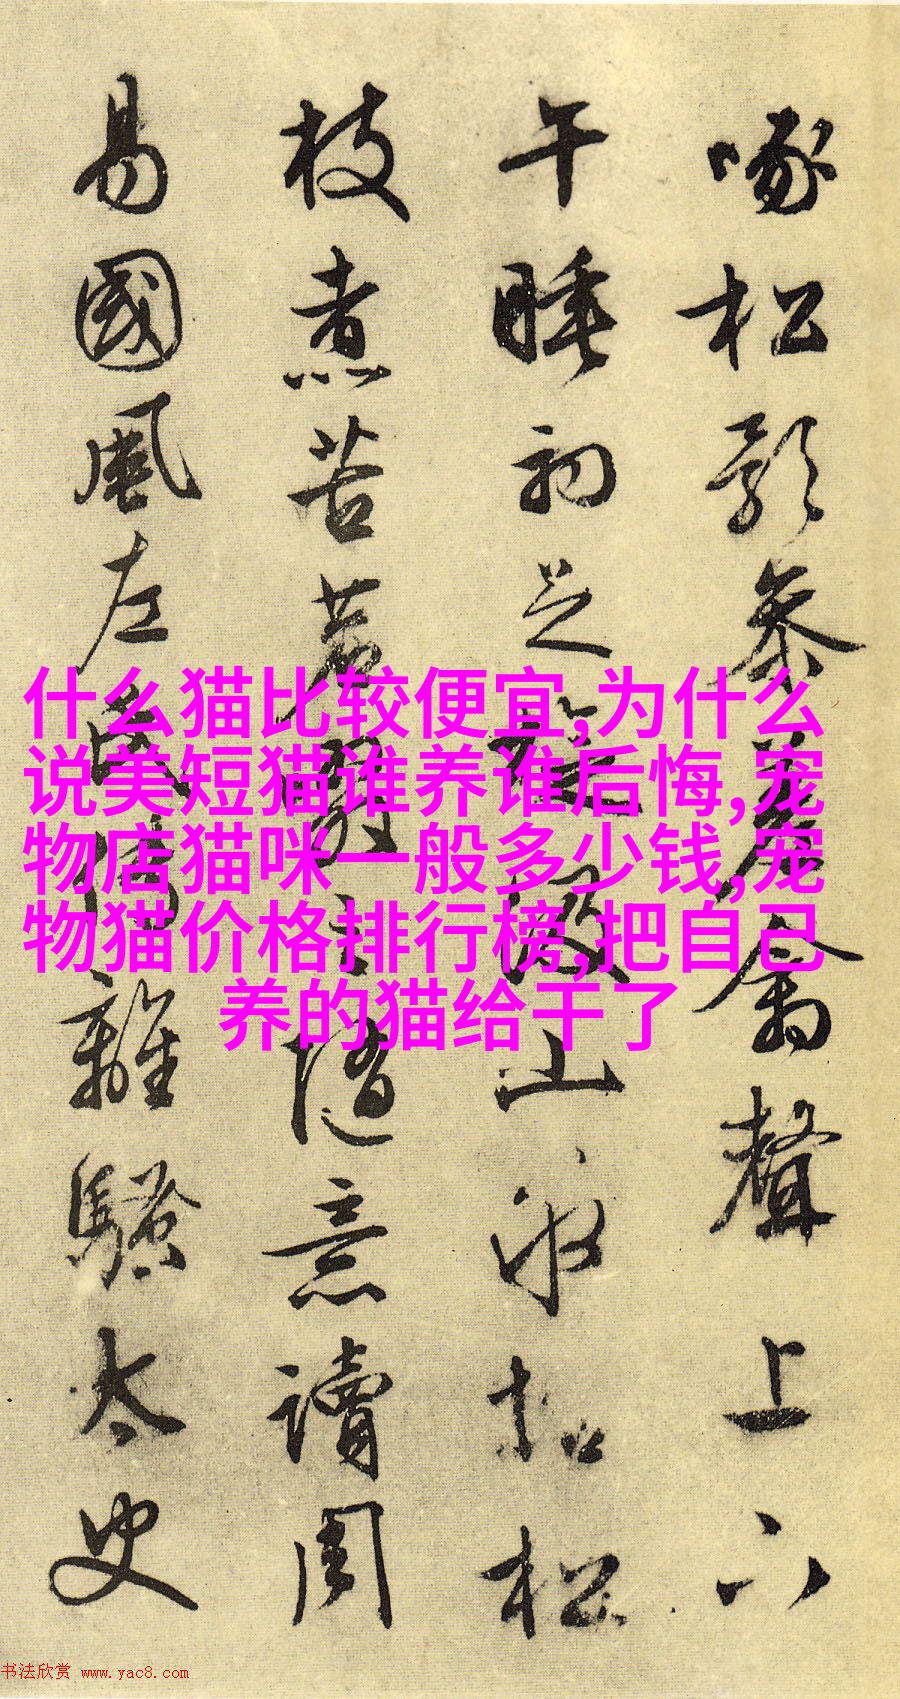 啄松影參差禽聲上下
午睡初足旋汲山泉拾松
枝煮苦茗啜之隨意讀周
易國風左氏傳離騷太史
什么猫比较便宜,为什么
说美短猫谁养谁后悔,宠
物店猫咪一般多少钱,宠
物猫价格排行榜,把自己
养的猫给干了
书法欣赏 www.yac8.com